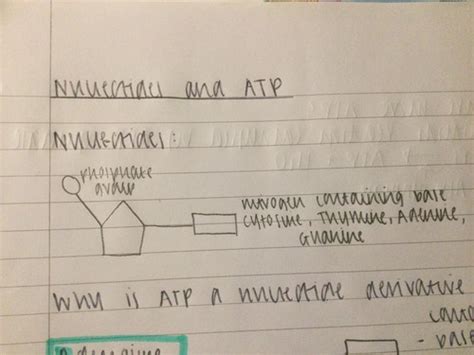 Nucleotides and ATP
Nucleotides:
phosphate
group
nitrogen containing base
cytosine, Thymine, Adenine,
Guanine
Why is ATP a nucleotide derivative
- base